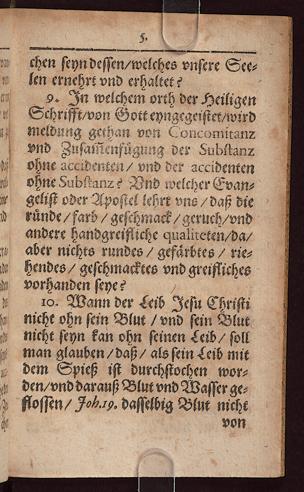 5.
chen seyn dessen/welches vnsere See-
len ernehrt vnd erhaltet?
9. In welchem orth der Heiligen
Schrifft/von Gott eyngegeistet/wird
meldung gethan von Concomitanz
vnd Zusam̃enfügung der Substanz
ohne accidenten / vnd der accidenten
ohne Substanz? Vnd welcher Evan-
gelist oder Apostel lehrt vns / daß die
ründe / farb / geschmack / geruch/vnd
andere handgreifliche qualiteten/da/
aber nichts rundes / gefärbtes / rie-
hendes / geschmacktes vnd greifliches
vorhanden seye?
10. Wann der Leib Jesu Christi
nicht ohn sein Blut / vnd sein Blut
nicht seyn kan ohn seinen Leib / soll
man glauben / daß / als sein Leib mit
dem Spieß ist durchstochen wor-
den/vnd darauß Blut vnd Wasser ge-
flossen / Joh. 19. dasselbig Blut nicht
von